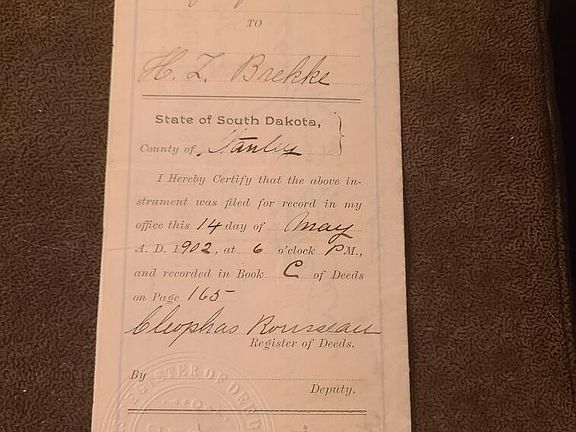 TO
H. L. Brekke
State of South Dakota,
County of Stanley
I Hereby Certify that the above in-
strument was filed for record in my
office this 14 day of May
A. D. 1902, at 6 o'clock P M.,
and recorded in Book C of Deeds
on Page 165
Cleophas Rousseau
Register of Deeds.
By
Deputy.
REGISTER OF DEEDS